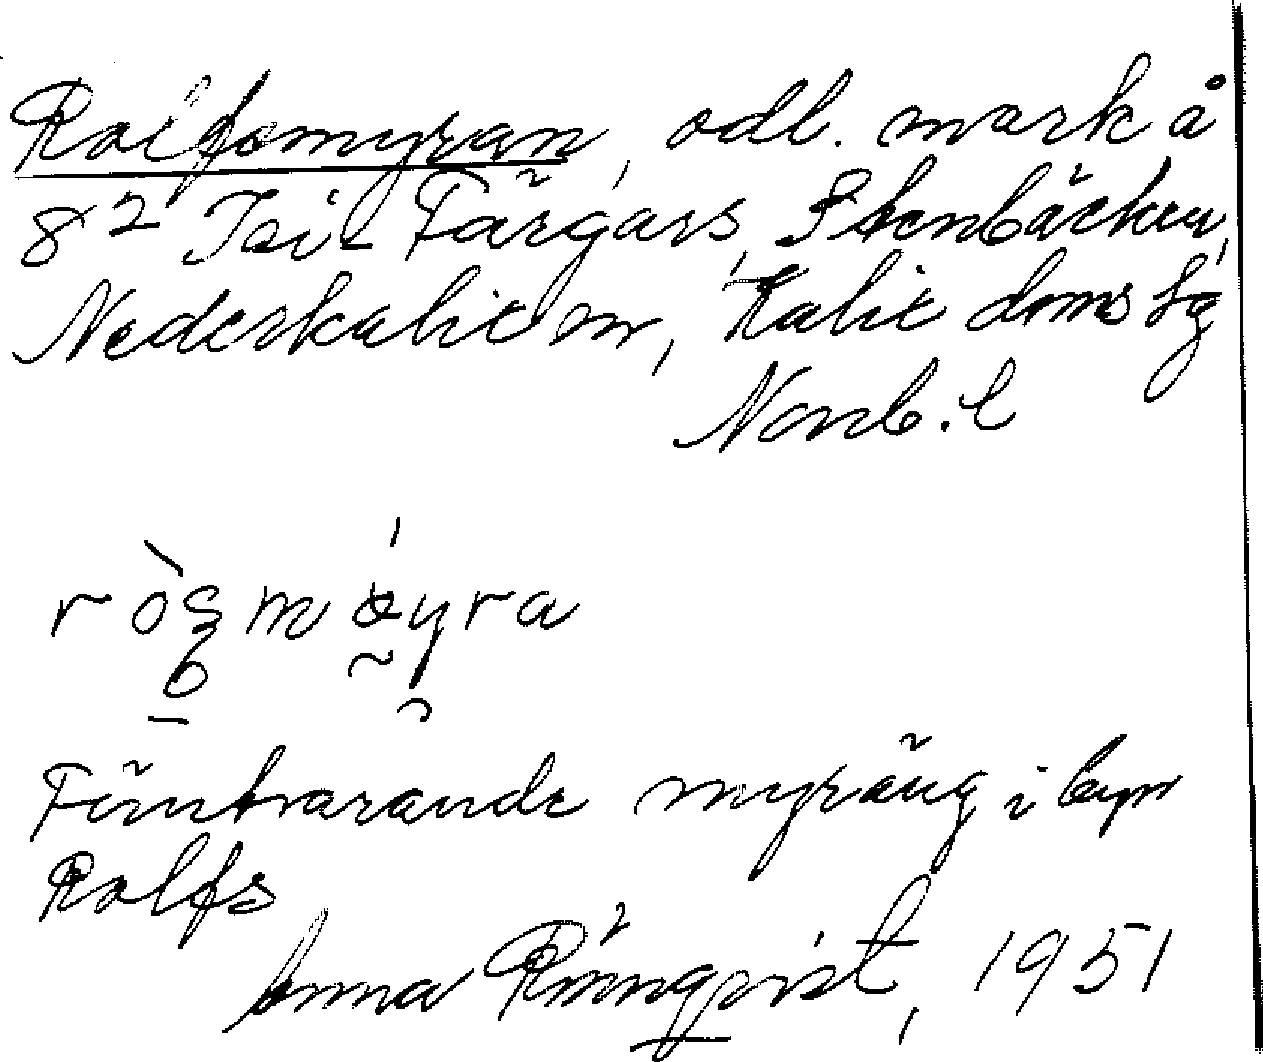 Rolfsmyran, odl. mark å
8² Tei Färgars, Stenbäcken,
Nederkalix sn, Kalix doms lg
Norrb. l
Förutvarande myräng i byn
Rolfs
Anna Rönnqvist, 1951